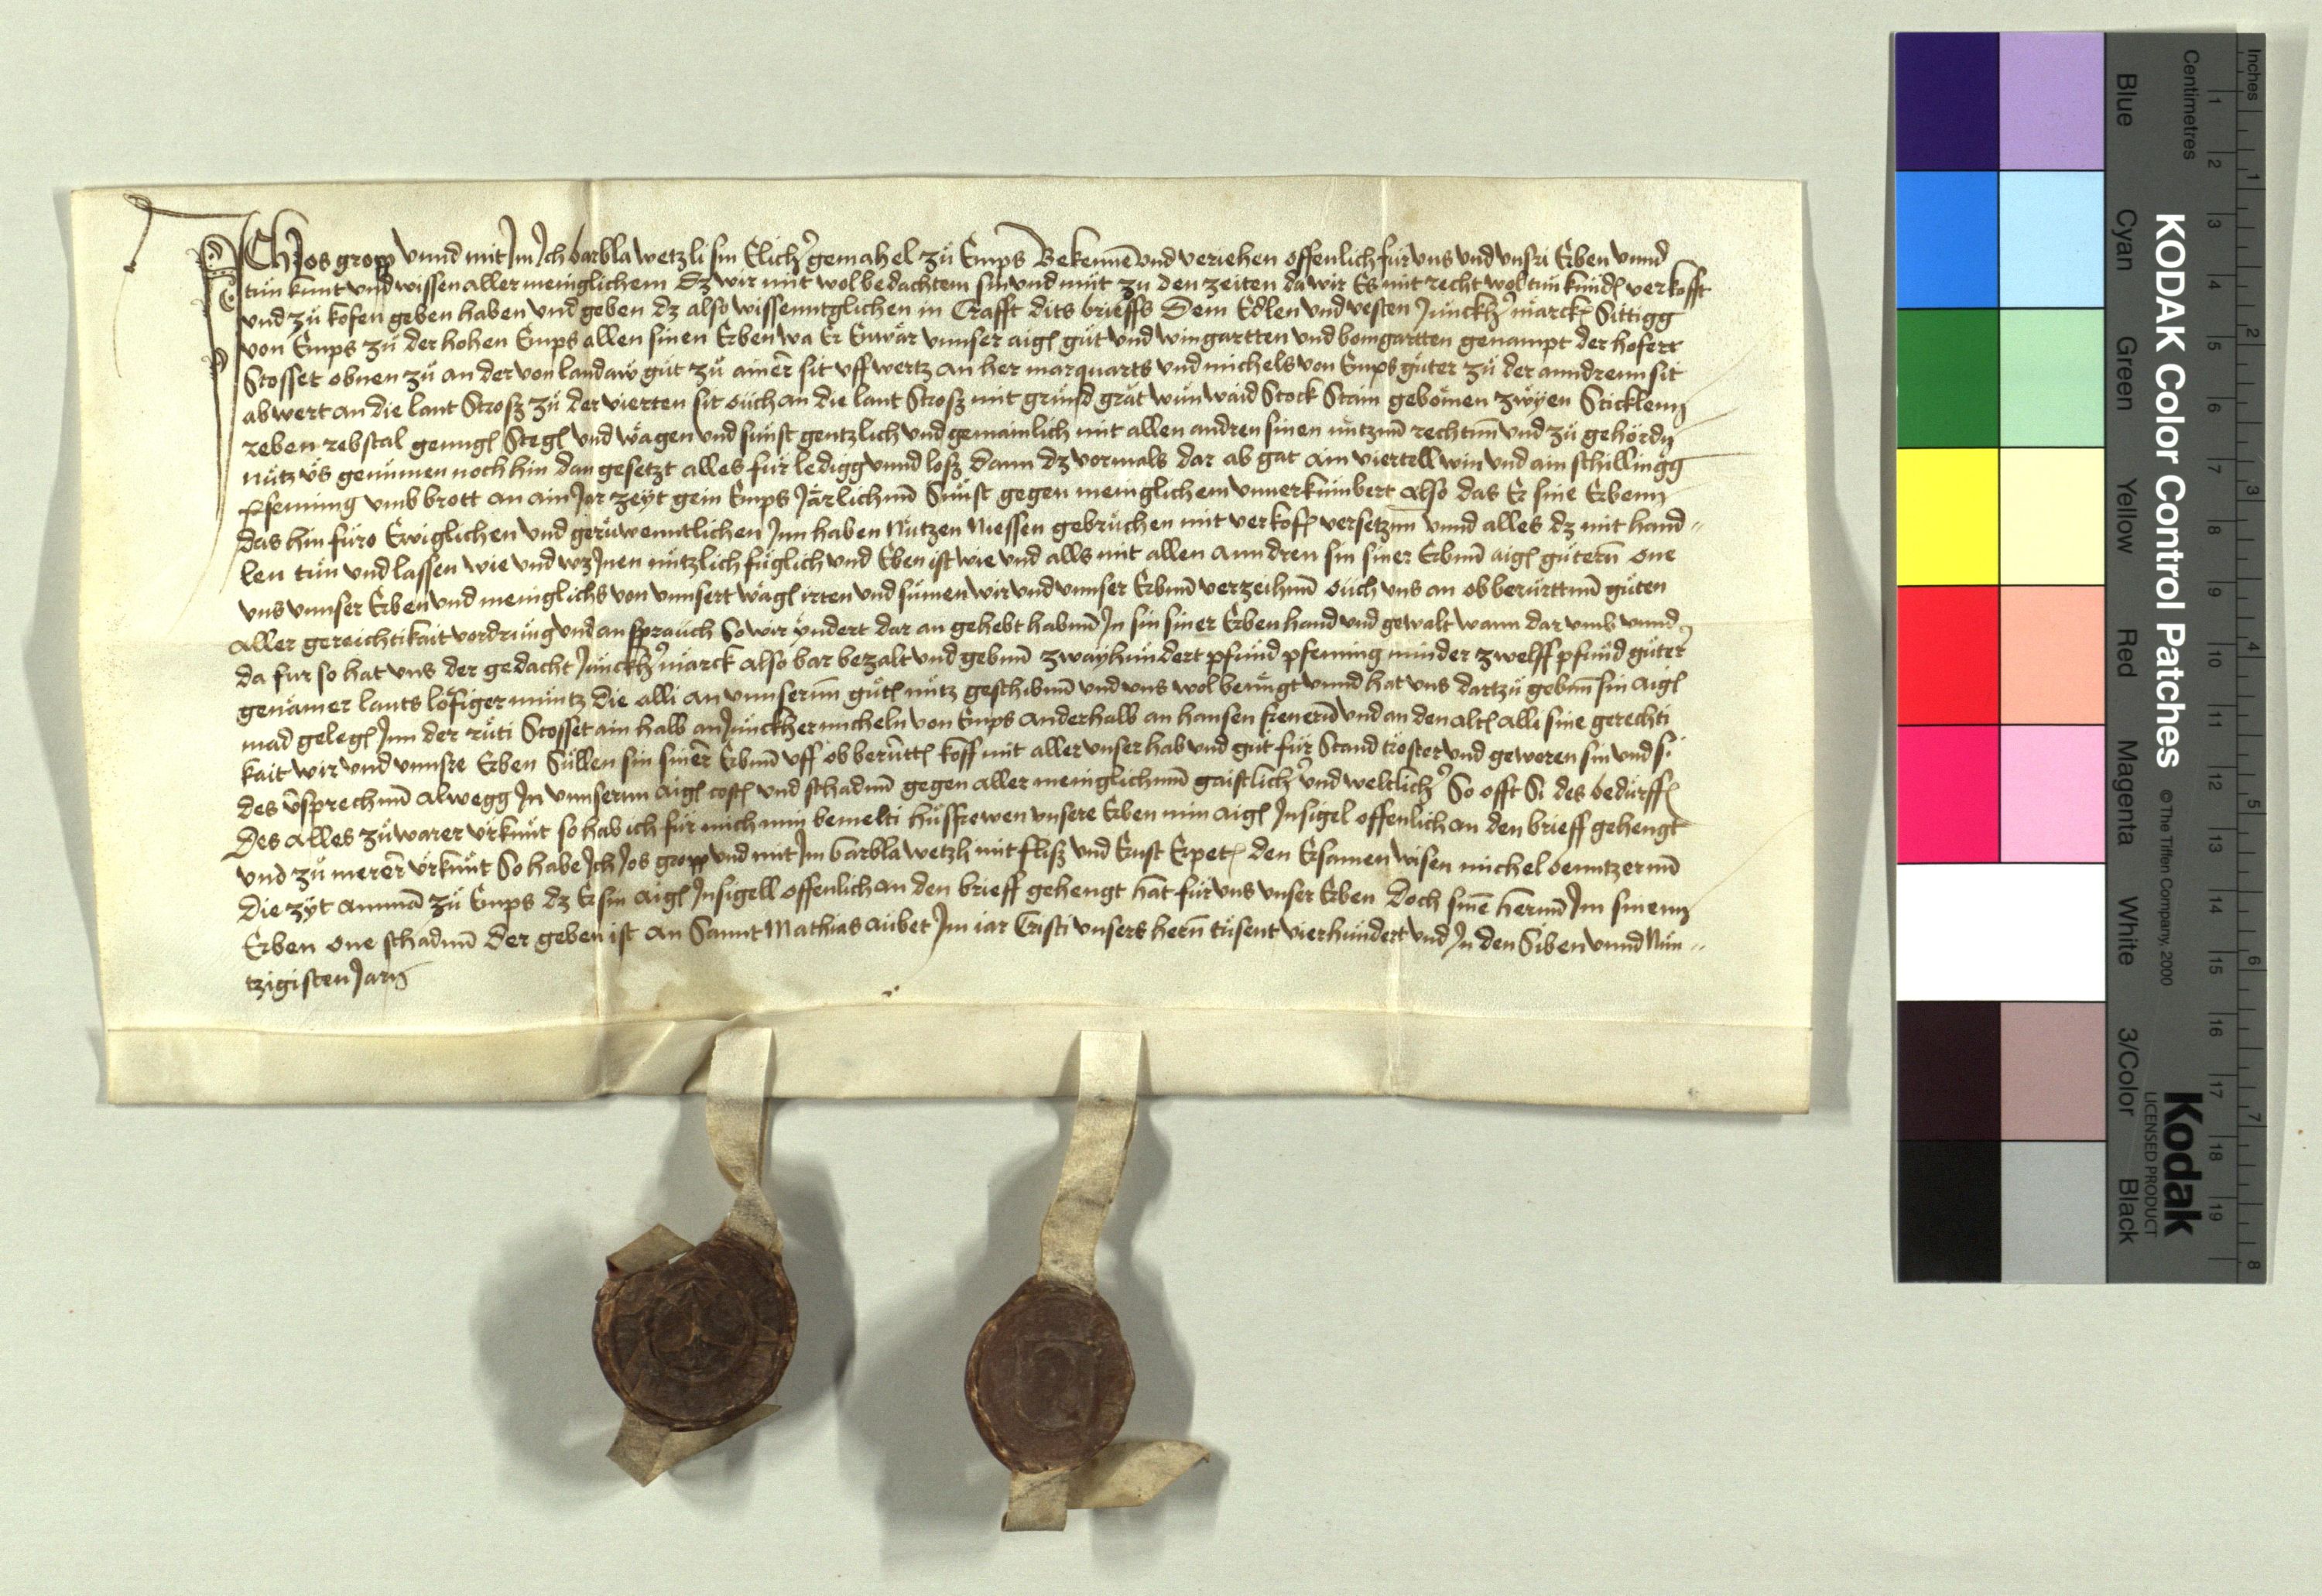 Ich Jos gropp vnnd mit Im Ich barbla wetzli sin Elicħ gemahel zuͦ Emps Bekennē vnd veriehen offenlich für vns vnd vnsri Erben vnnd
tuͦn kunt vnd wissen aller meniglichem Dz wir mit wolbedachtem sin vnd muͦt zu den zeiten da wir Es mit recht wol tuͦn kundē verkofft
vnd zuͦ kofen geben haben vnd geben dz also wissenntglichen in Crafft dits brieffs Dem Edlen vnd vesten Junckħ märckē Sittigg
von Emps zuͦ der hohen Emps allen sinen Erben wa Er Enwär vnnser aigē guͦt vnd wingartten vnd bomgartten genampt der hofert
Stosset obnen zuͦ an der von landaw guͦt zuͦ ainer sit vffwertz an her marquarts vnd michels von Emps guͤter zuͦ der anndrenn sit
abwert an die lant Strosz zuͦ der vierten sit ouch an die lant Strosz mit grund grät wun waid Stock Stain geboͤmen zwyen Sticklenn
reben rebstal genngē Stegē vnd wägen vnd sunst gentzlich vnd gemainlich mit allen andren sinen nutzn̄ rechtn̄ vnd zuͦ gehördn
nutz vs genumen noch hin dan gesetzt alles für ledigg vnnd losz dann dz vormals dar ab gat ain viertell win vnd ain schillingg
pfenning vmb brott an ain Jor zeyt gein Emps Järlichn̄ Sunst gegen meniglichem vnuerkumbert also das Er sine Erbenn
das hin füro Ewiglichen vnd geruͤwenntlichen Inn haben Nutzen Niessen gebruchen mit verkofē versetzn̄ vnnd alles dz mit hand-
len tuͦn vnd lassen wie vnd wz Inen nutzlich fuͤglich vnd Eben ist wie vnd alls mit allen anndren sin siner Erbn̄ aigē guͤtern̄ one
vns vnnser Erben vnd meniglichs von vnnsert wägē irren vnd sumen wir vnd vnnser Erbn̄ verzeihn̄ ouch vns an obberürttn̄ guͤten
aller gereichtikait vordrung vnd ansprauch So wir yndert dar an gehebt habn̄ In sin siner Erben hand vnd gewalt wann dar vmb vnnd
da fur so hat vns der gedacht Junckħ märck also bar bezalt vnd gebn̄ zwayhundert pfund pfenning minder zwelff pfund guͤter
genämer lants löfiger muntz die alli an vnnserm guͤtē nutz geschibn̄ vnd vns wol benuͤgt vnnd hat vns dartzuͦ gebn̄ sin aigē
mad gelegē Inn der ruͤti Stosset ain halb an Junckher micheln von Emps anderhalb an hansen frenern̄ vnd an den altē alli sine gerechti
kait wir vnd vnnsre Erben Süllen sin siner̄ Erbn̄ vff obberuͤrttē koff mit aller vnser hab vnd guͦt für Stand troͤster vnd geweren sin vnd si
des v̄sprechn̄ alwegg In vnnserm aigē costē vnd schadn̄ gegen aller meniglichn̄ gaistlicħ vnd weltlicħ So offt Si des bedürffē
Des alles zuͦ warer vrkunt so hab ich für mich min bemelti husfrewen vnsere Erben min aigē Insigel offenlich an den brieff gehengt
vnd zuͦ merer̄ vrkunt So habe Ich Jos gropp vnd mit Im barbla wetzli mit flisz vnd Ernst Erpetē den Ersamen wisen michel benntzern̄
die zyt amman̄ zuͦ Emps dz Er sin aigē Insigell offenlich an den brieff gehengt hat für vns vnser Erben doch sinē hern̄ Im sinenn
Erben one schadn̄ Der geben ist an Sannt Mathias aubet Im iar Cristi vnsers hern̄ tusent vierhundert vnd In den Siben vnnd Nün-
tzigisten Jarn
KODAK Color Control Patches © The Tiffen Company, 2000 Kodak
LICENSED PRODUCT
Blue Cyan Green Yellow Red Magenta White 3/Color Black
Centimetres 1 2 3 4 5 6 7 8 9 10 11 12 13 14 15 16 17 18 19
Inches 1 2 3 4 5 6 7 8